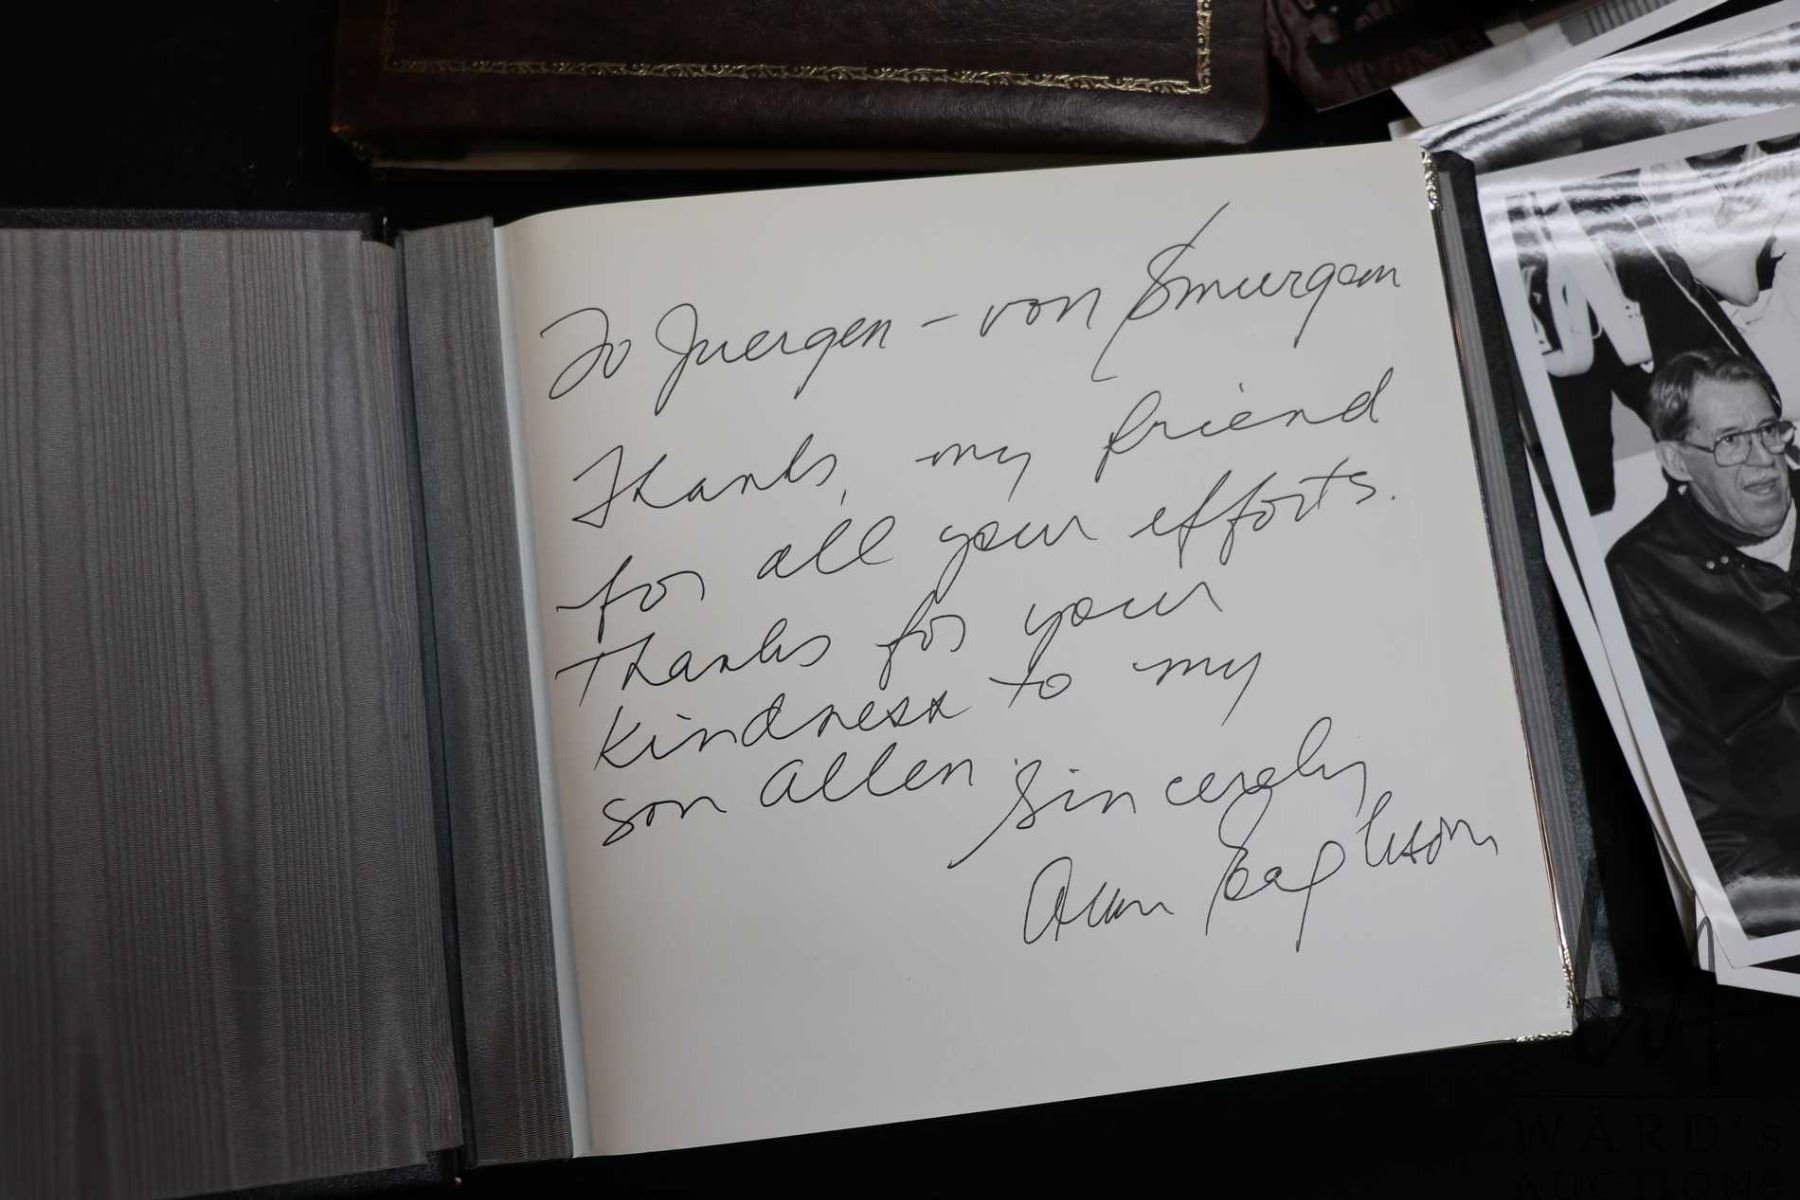 To Juergen - von Smurgen
Thanks, my friend
for all your efforts.
Thanks for your
kindness to my
son Allen.
Sincerely
Alan Eagleson
WARD's
AUCTIONS